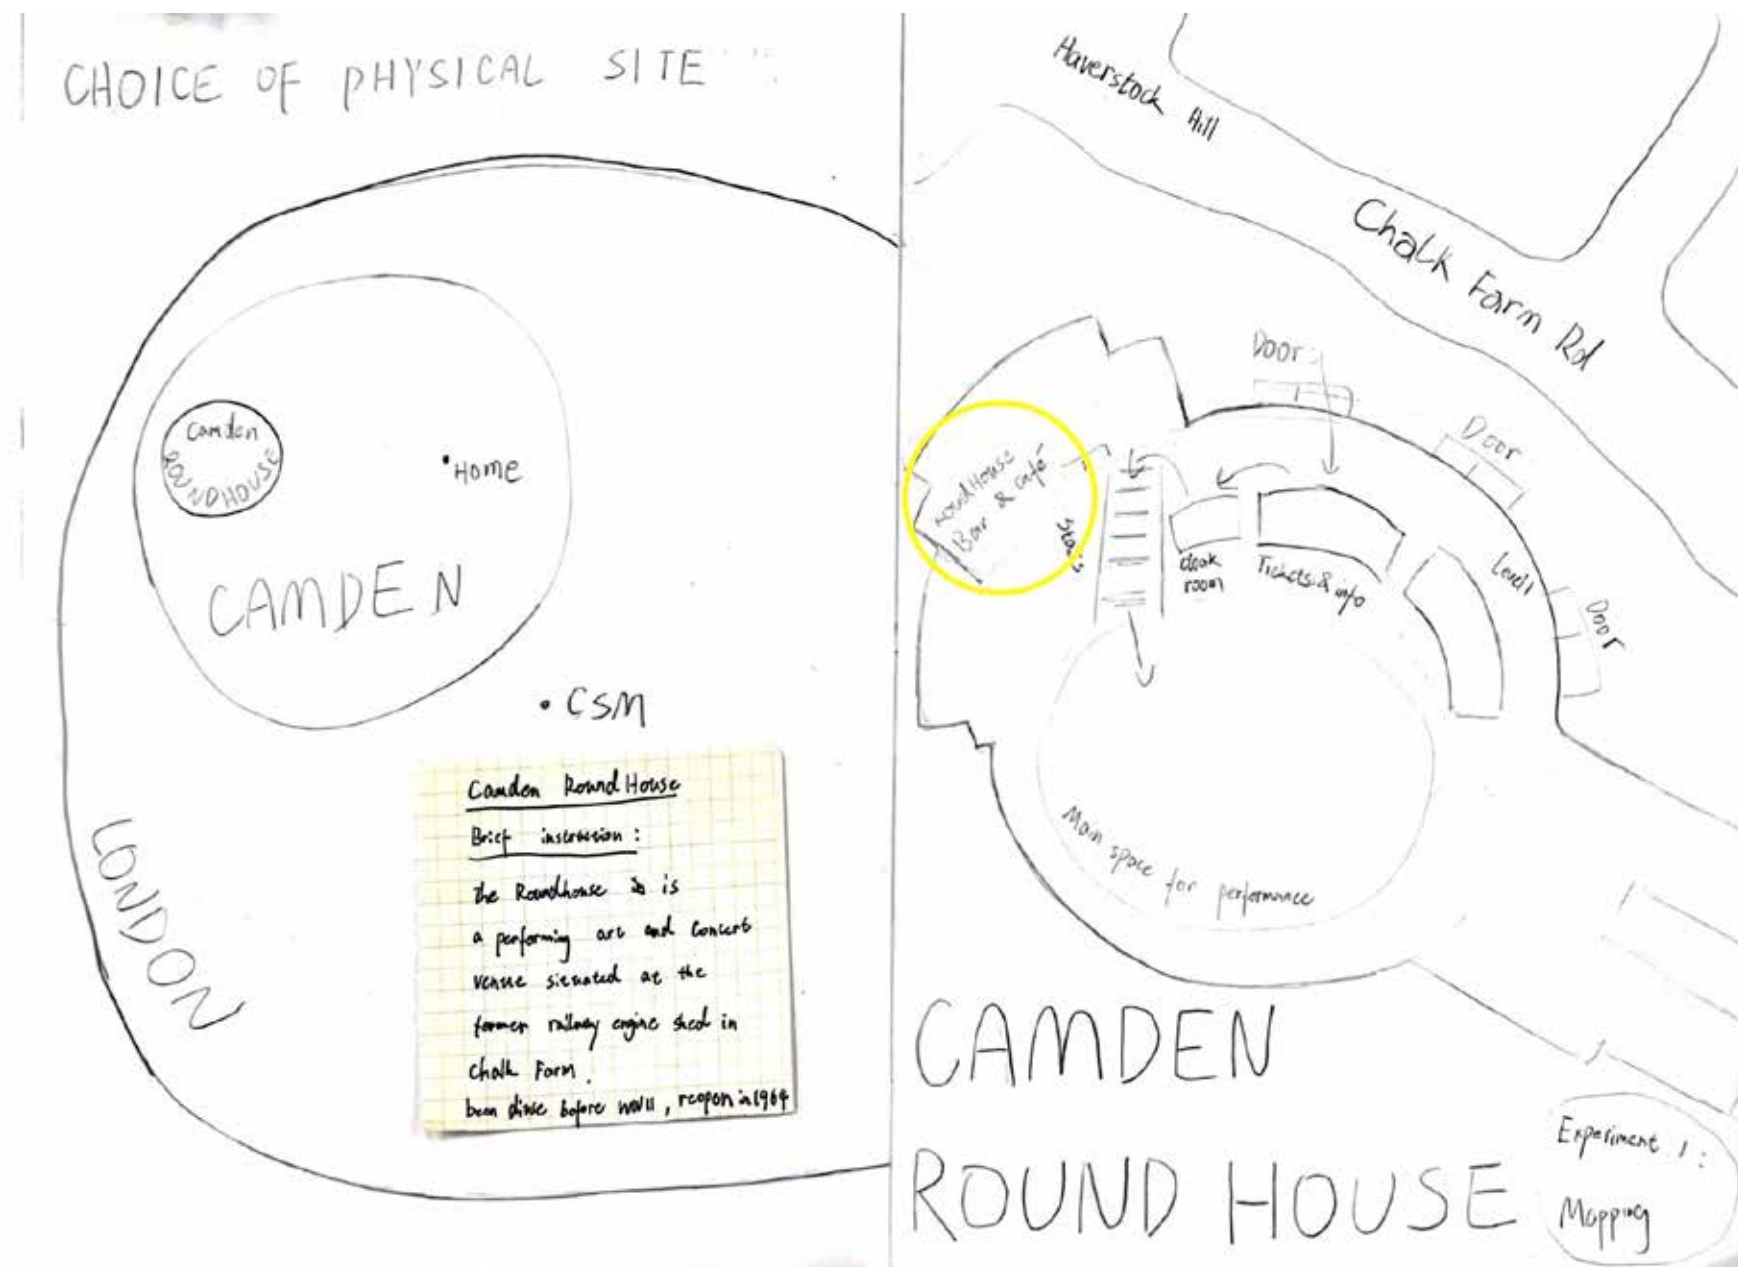 CHOICE OF PHYSICAL SITE
Camden
ROUNDHOUSE
Home
CAMDEN
CSM
LONDON
Camden Round House
Brief instruction :
the Roundhouse is
a performing art and concert
venue situated at the
former railway engine shed in
Chalk Farm.
been before WWII, reopen in 1964
Haverstock Hill
Chalk Farm Rd
Door
Door
Door
Round House
Bar & café
Stairs
cloak
room
Tickets & info
Level 1
Main space for performance
CAMDEN
ROUND HOUSE
Experiment 1 :
Mapping